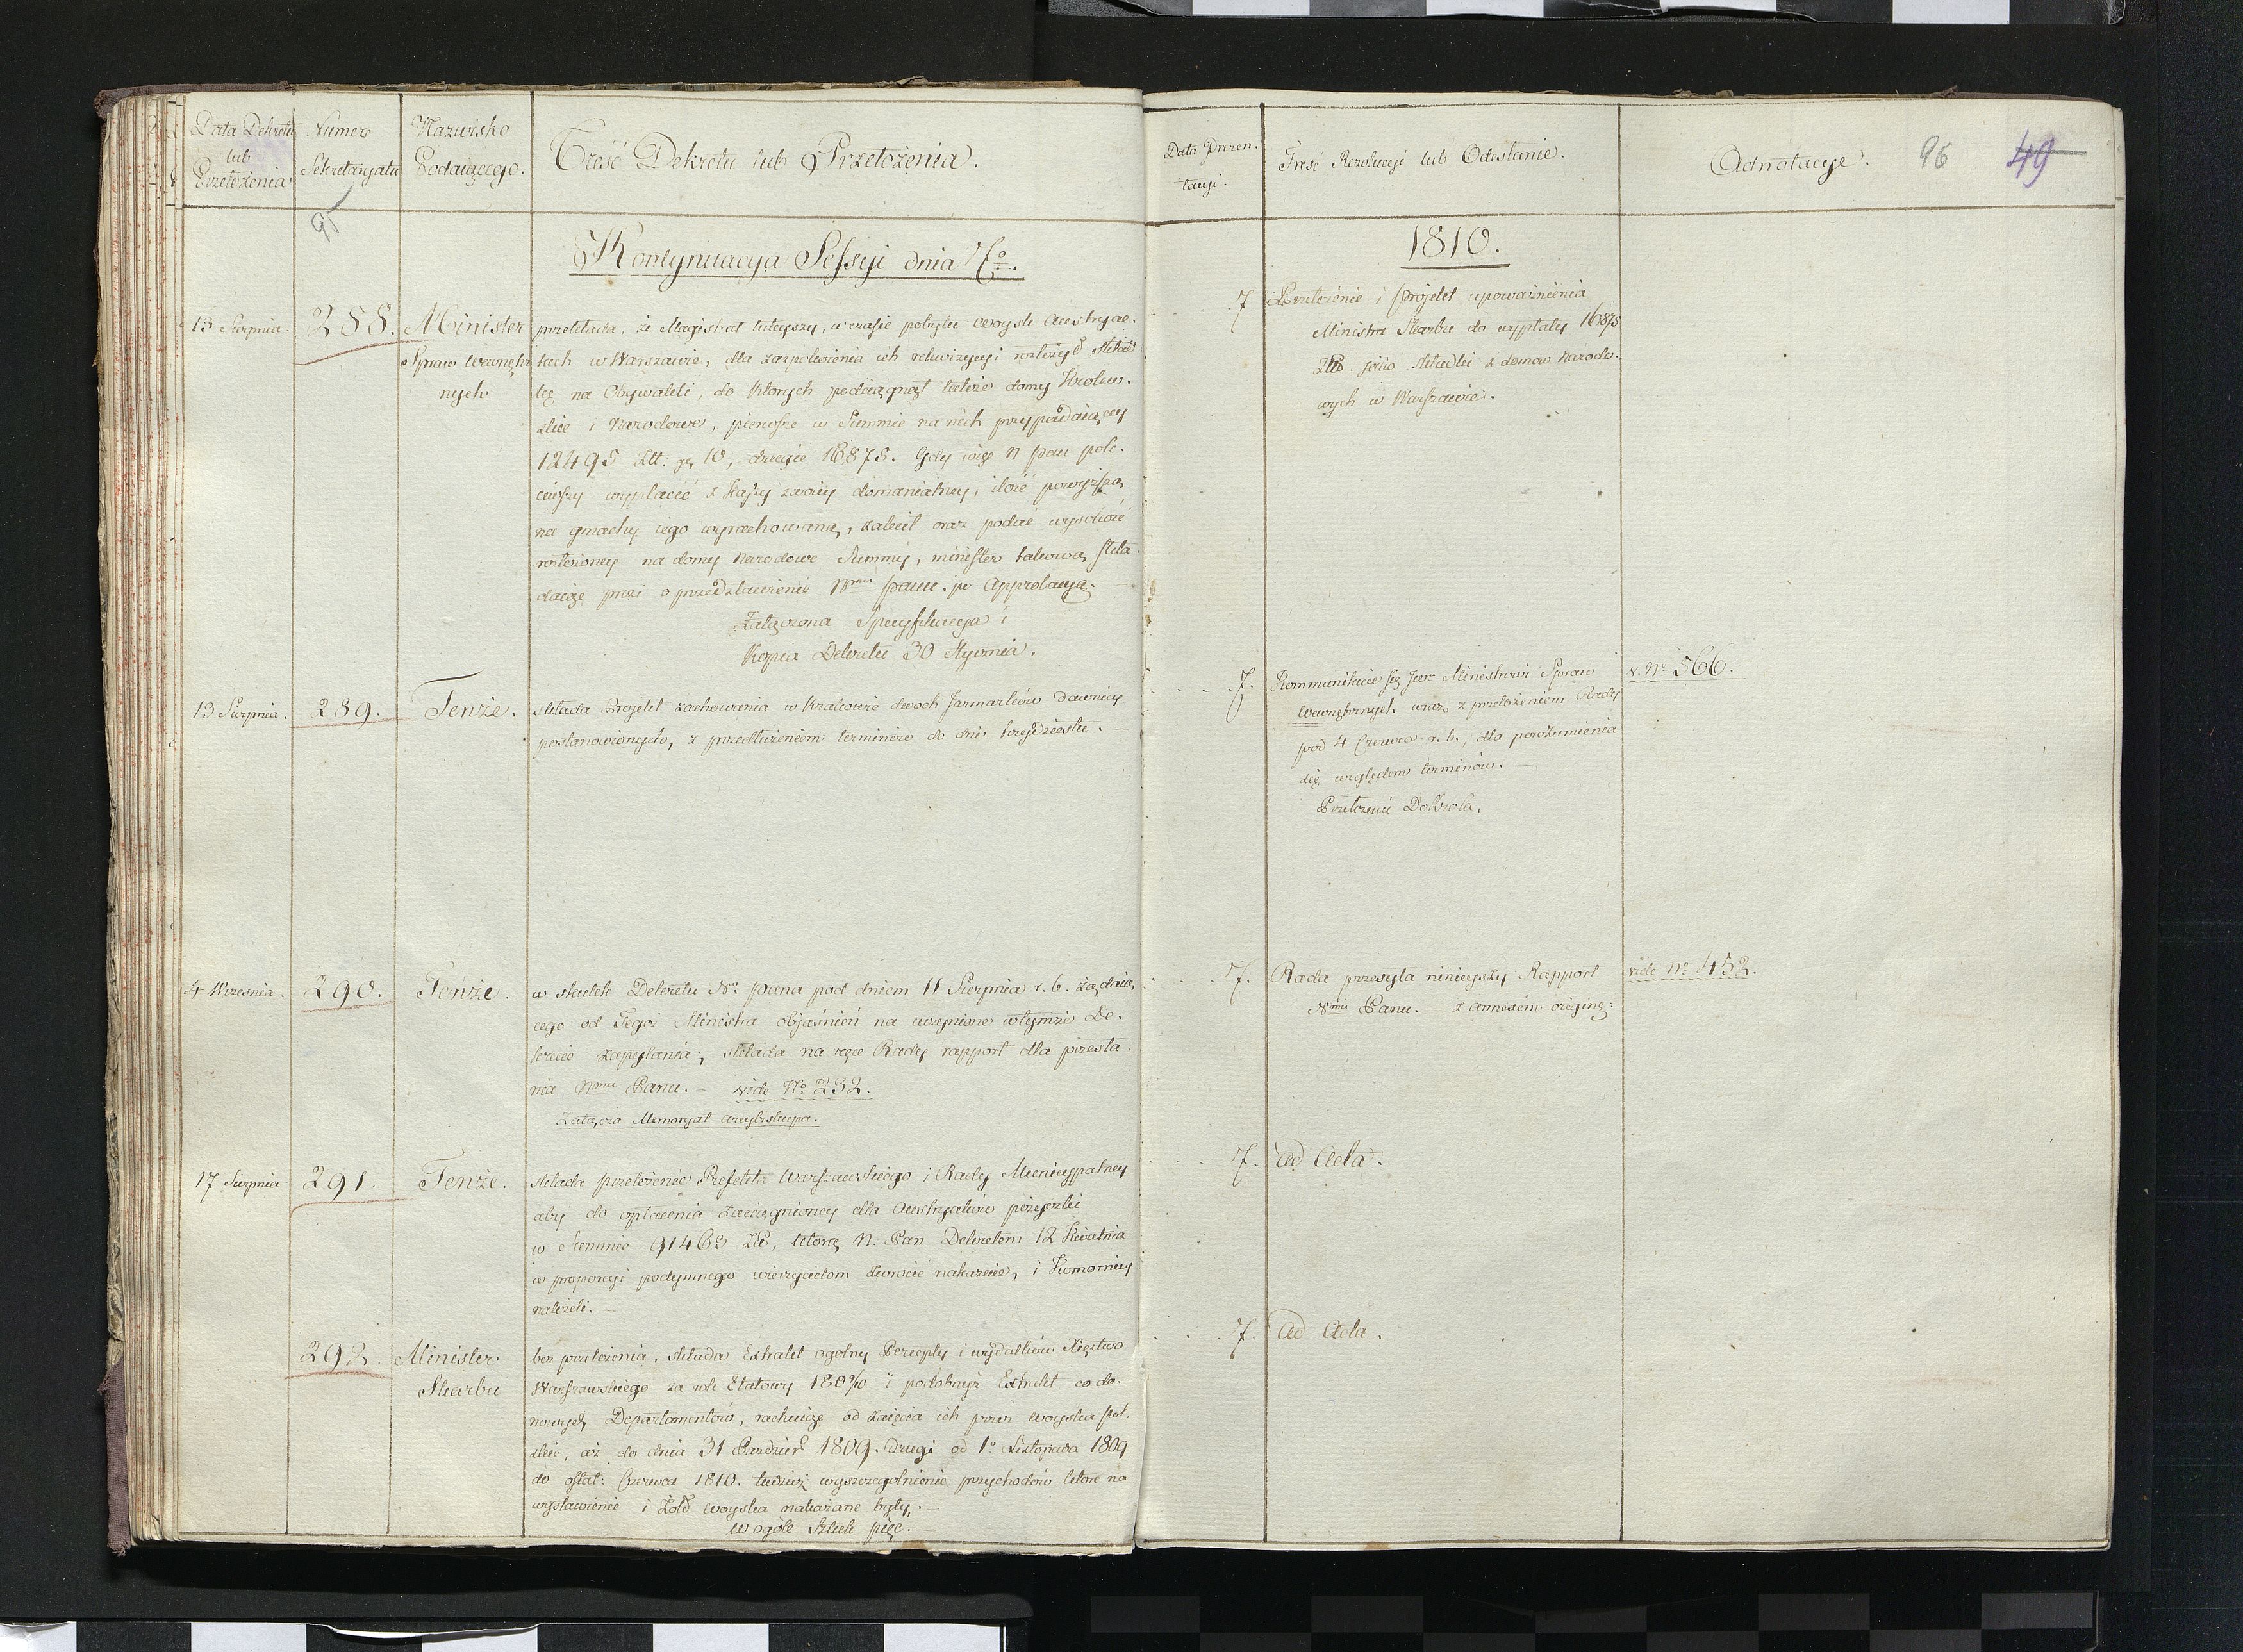 Data Dekretu
lub
Przełożenia
Numer
Sekretaryatu
Nazwisko
Podaiącego.
Treść Dekretu lub Przełożenia.
95
Kontynuacya Sessyi dnia 7o.
13 Sierpnia.
288.
Minister
Spraw Wewnętrz
nych
przekłada, że Magistrat tuteyszy, w czasie pobytu woysk Austryac.
kich w Warszawie, dla zaspokoienia ich rekwizycyi rozłożył Skład
kę na Obywateli, do których podciągnął także domy Królew.
skie i Narodowe, pierwsze w Summie na nich przypadaiącey
12495 Złt: gr 10, drugie 16875. Gdy więc N Pan pole.
ciwszy wypłacić z Kassy swoiey domanialney, ilość powyższą
na gmachy iego wyrachowaną, zalecił oraz podać wysokość
rozłożoney na domy Narodowe Summy, minister takową skła
daiąc prosi o przedstawienie Nmu Panu po approbacyą.
Załączona Specyfikacya i
Kopia Dekretu 30 Stycznia.
13 Sierpnia.
289.
Tenże.
składa Projekt zachowania w Krakowie dwoch Jarmarków dawniey
postanowionych, z przedłużeniem terminów do dni trzydziestu. —
4 Wrzesnia.
290.
Tenże.
w skutek Dekretu No Pana pod dniem 11 Sierpnia r. b. żądaią
cego od Tegoż Ministra objaśnień na uczynione w tymże De.
krecie zapytania; składa na ręce Rady rapport dla przesła
nia Nmu Panu. — vide No 232.
Załącza Memoryał arcybiskupa.
17 Sierpnia
291.
Tenże.
składa przełożenie Prefekta Warszawskiego i Rady Municypalney
aby do opłacenia zaciągnioney dla Austryaków pożyczki
w Summie 91463 Złp, którą N. Pan Dekretem 12 Kwietnia
w proporcyi podymnego wierzycielom zwrócić nakazuie, i Komornicy
należeli. —
292.
Minister
Skarbu
bez przełożenia, składa Extrakt ogolny Percepty i wydatków Xięstwa
Warszawskiego za rok Etatowy 1809/10 i podobnyż Extrakt co do
nowych Departamentów, rachuiąc od zaięcia ich przez woyska pol.
skie, aż do dnia 31 Paździer 1809. Drugi od 1o Listopada 1809
do ostat: Czerwca 1810. tudzież wyszczegolnienie przychodów które na
wystawienie i Żołd woyska nakazane były. —
w ogóle Sztuk pięć. —
Data Prezen.
tacyi.
Treść Rezolucyi lub Odesłanie.
Adnotacye.
96
49
1810.
7
Przełożenie i projekt upoważnienia
Ministra Skarbu do wypłaty 16875
Złp. jako składki z domow Narodo.
wych w Warszawie.
7.
Kommunikuie się Jwu Ministrowi Spraw
Wewnętrznych wraz z przełożeniem Rady
pod 4 Czerwca r. b., dla porozumienia
się względem terminów. —
Przełożenie Dekreta.
v. No 566.
7.
Rada przesyła ninieyszy Rapport
Nmu Panu. — z annexem orygina:
vide No 452.
7.
Ad Acta.
7.
Ad Acta.